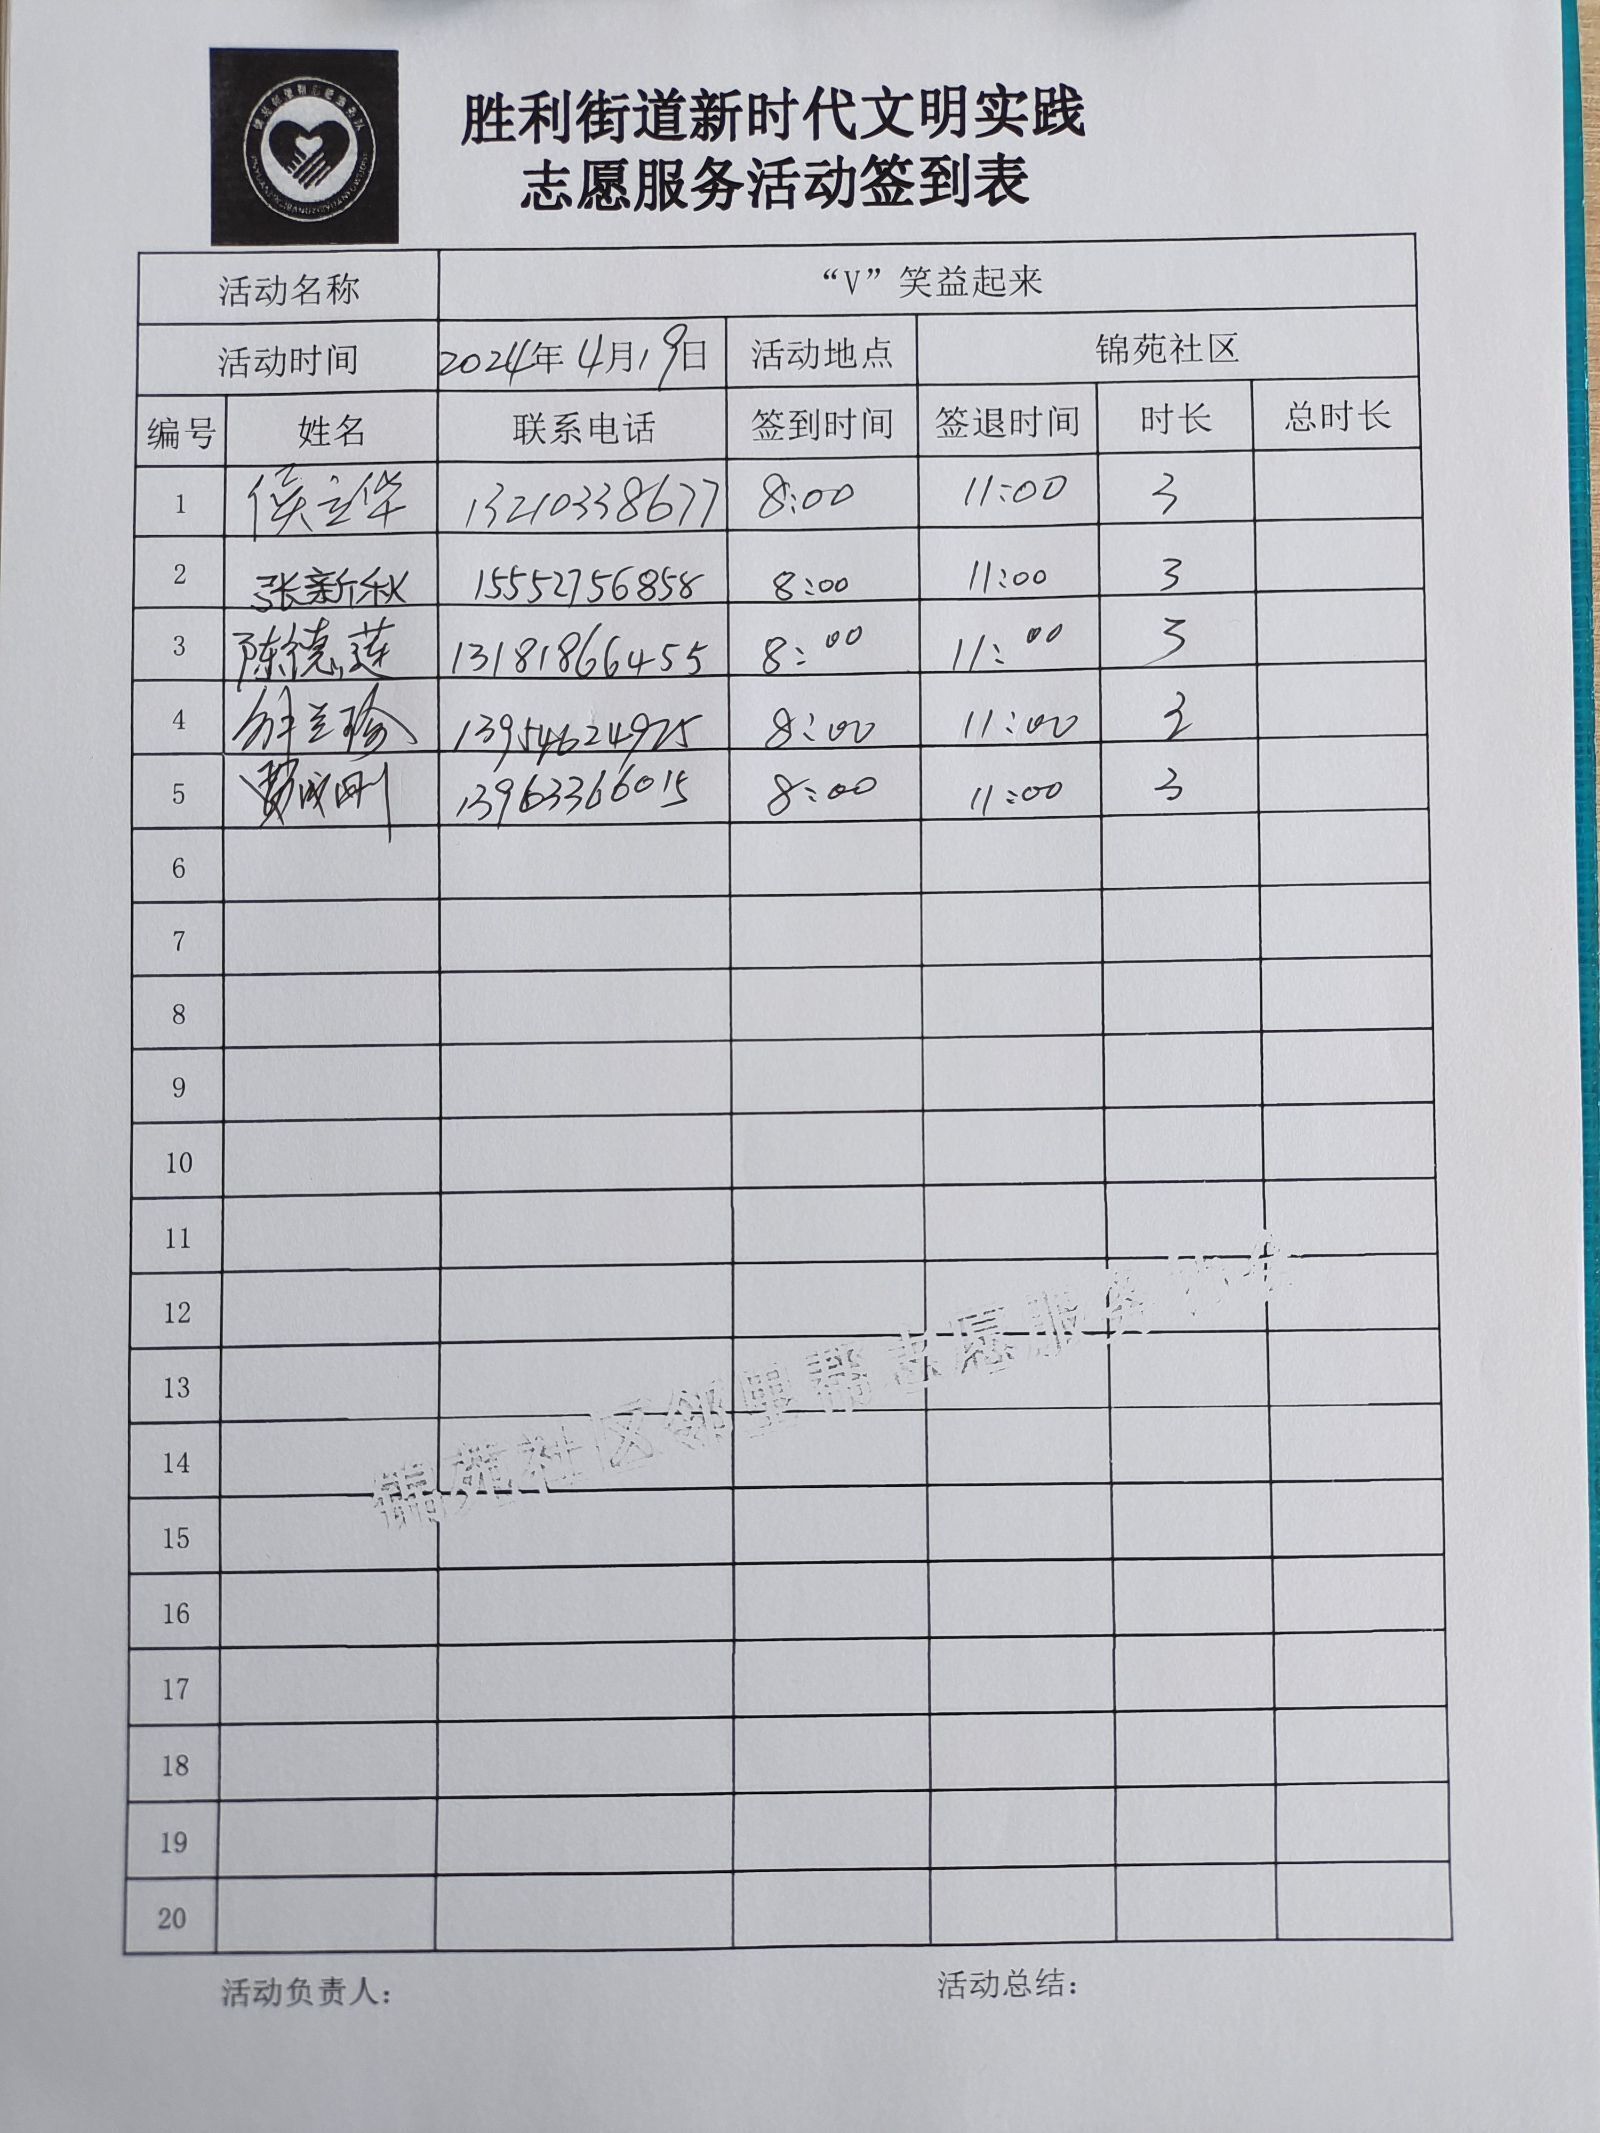 胜利街道新时代文明实践
志愿服务活动签到表
活动名称 “V”笑益起来
活动时间 2024年4月19日 活动地点 锦苑社区
编号 姓名 联系电话 签到时间 签退时间 时长 总时长
1 侯立华 13210338677 8:00 11:00 3
2 张新秋 15552756858 8:00 11:00 3
3 陈德莲 13181866455 8:00 11:00 3
4 13954624925 8:00 11:00 3
5 13963366015 8:00 11:00 3
6
7
8
9
10
11
12
13
锦苑社区邻里帮志愿服务
14
15
16
17
18
19
20
活动负责人： 活动总结：